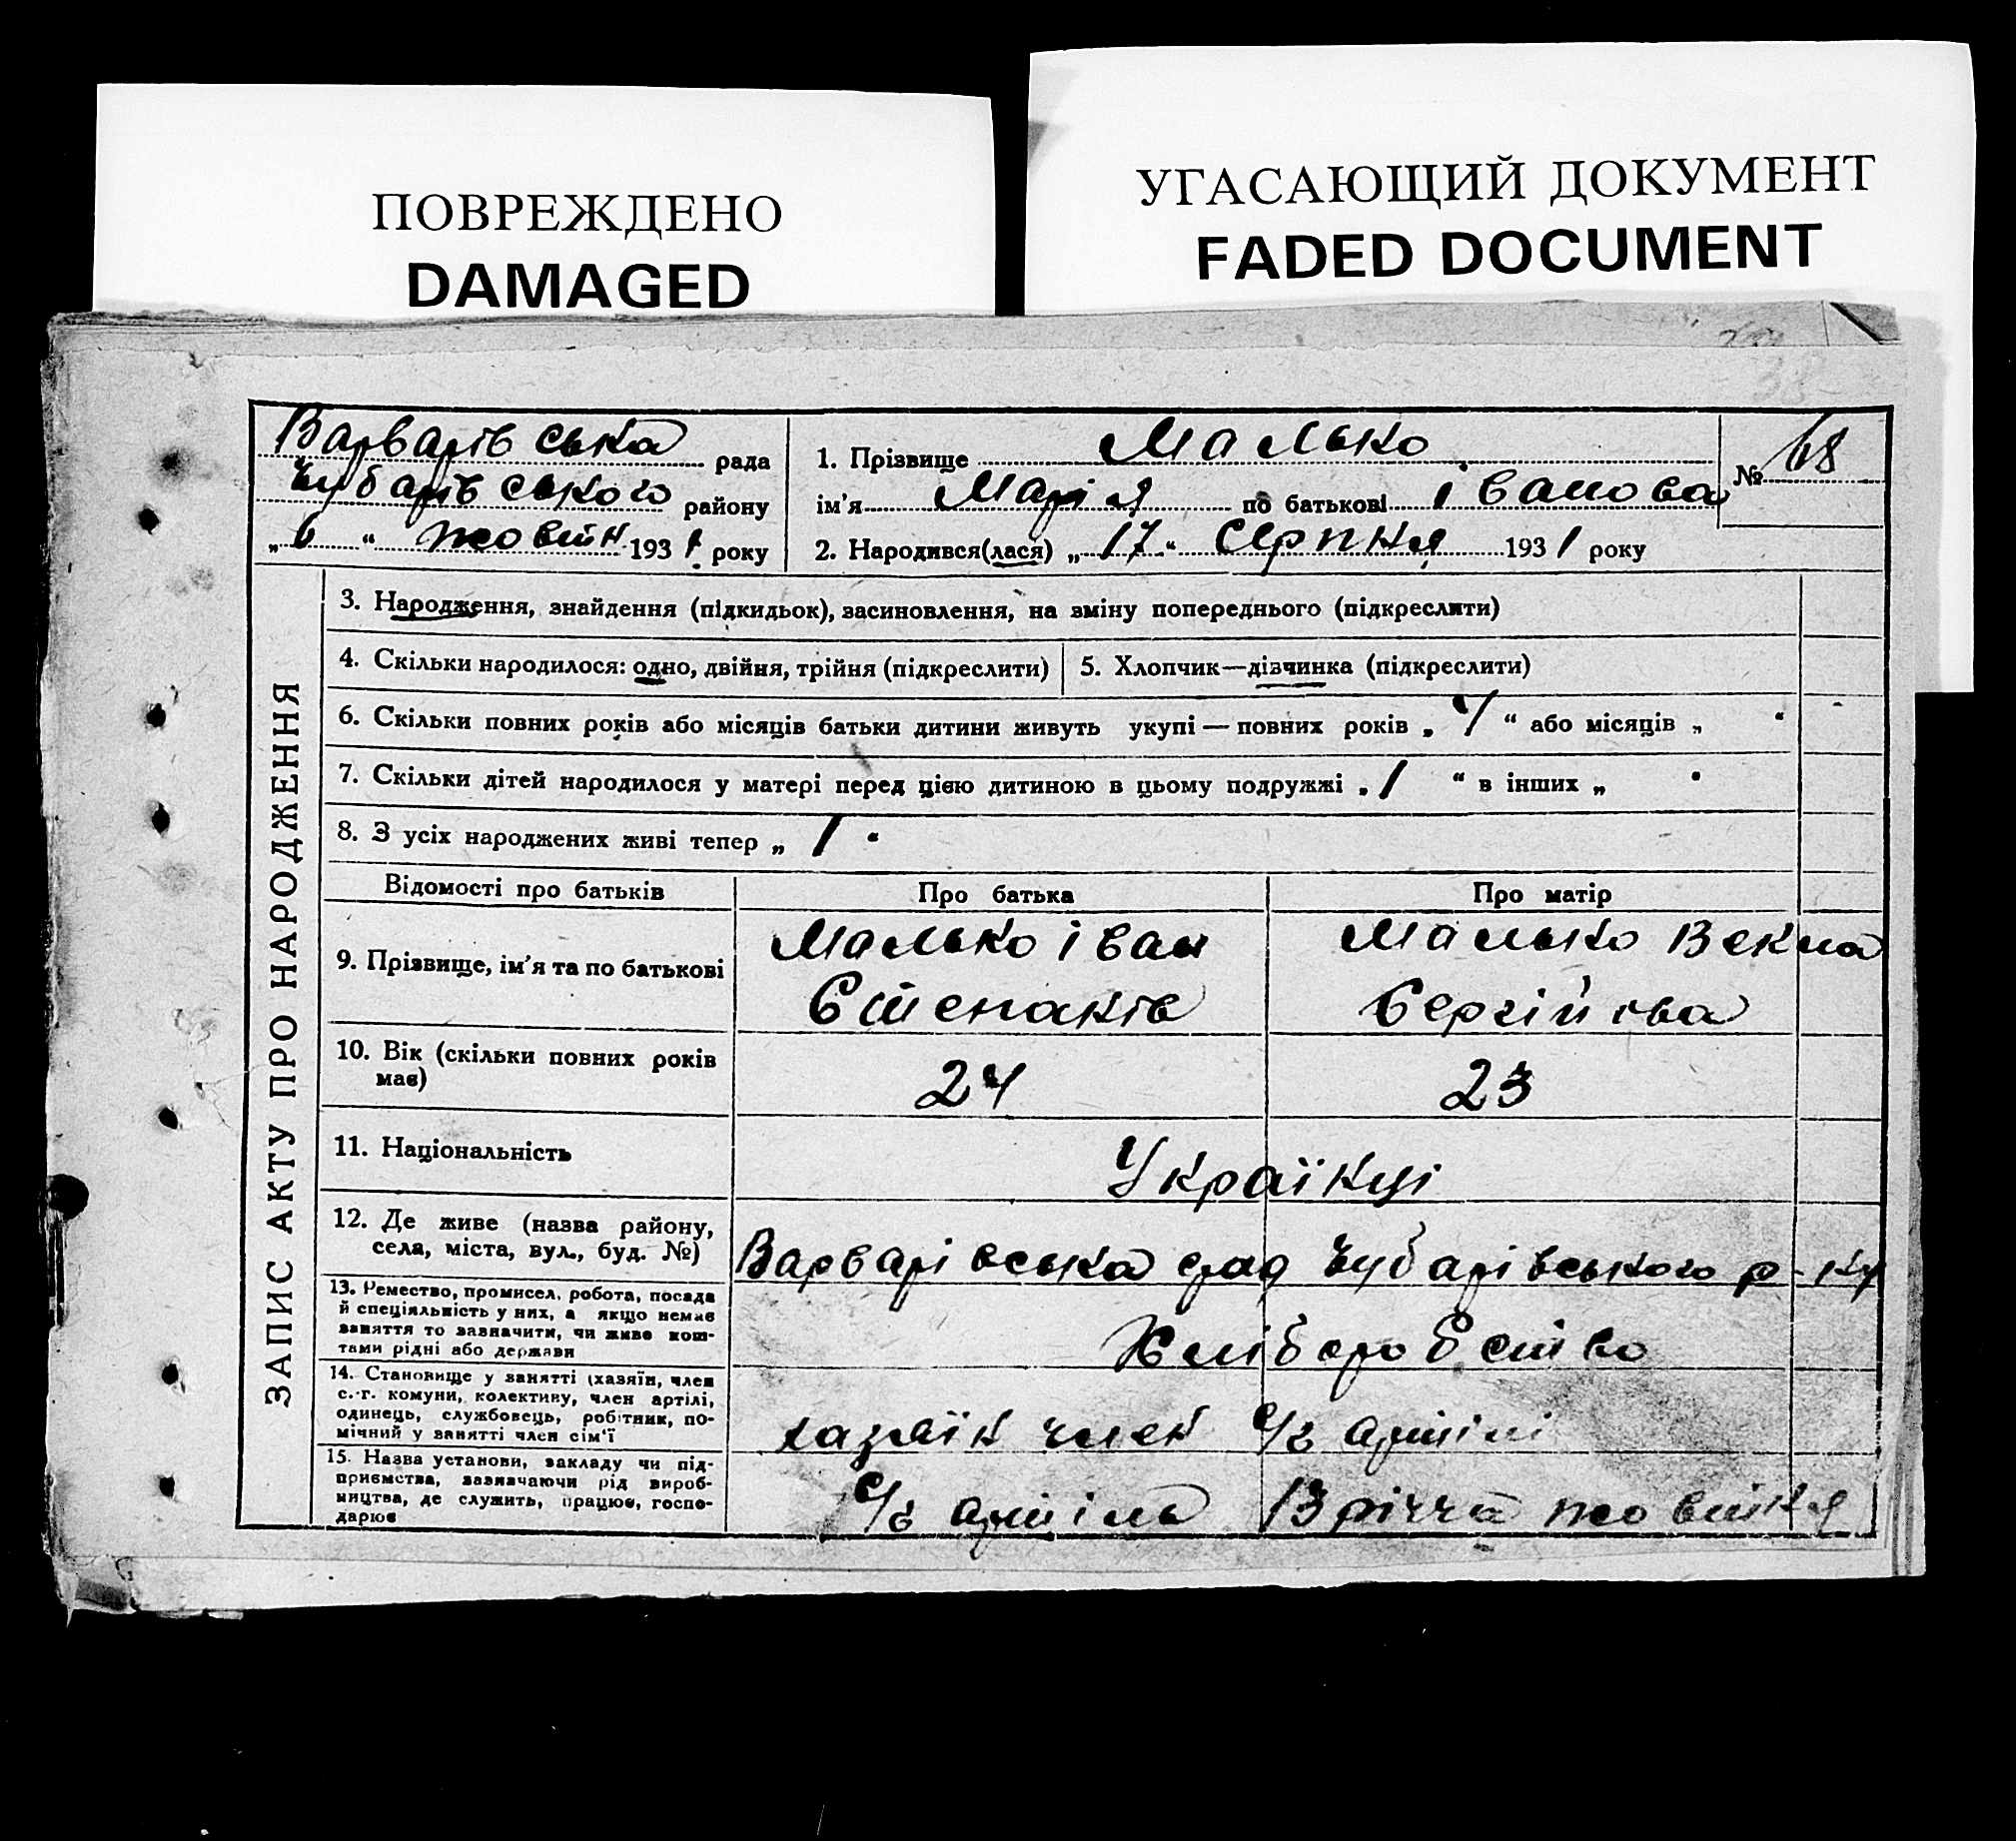 ПОВРЕЖДЕНО
DAMAGED
УГАСАЮЩИЙ ДОКУМЕНТ
FADED DOCUMENT
38
Варварівська рада
Чубарівського району
„ 6 “ жовтн 1931 року
1. Прізвище Малько
ім'я Марія по батькові Іванова
2. Народився(лася) „ 17 “ Серпня 1931 року
№ 68
ЗАПИС АКТУ ПРО НАРОДЖЕННЯ
3. Народження, знайдення (підкидьок), засиновлення, на зміну попереднього (підкреслити)
4. Скільки народилося: одно, двійня, трійня (підкреслити)
5. Хлопчик—дівчинка (підкреслити)
6. Скільки повних років або місяців батьки дитини живуть укупі — повних років „ 4 “ або місяців „ “
7. Скільки дітей народилося у матері перед цією дитиною в цьому подружжі „ 1 “ в інших „ “
8. З усіх народжених живі тепер „ 1 “
Відомості про батьків
Про батька
Про матір
9. Прізвище, ім'я та по батькові
Малько Іван
Степанів
Малько
Сергійова
10. Вік (скільки повних років
має)
24
23
11. Національність
Українці
12. Де живе (назва району,
села, міста, вул., буд. №)
Варварівська рад Чубарівського р-ну
13. Ремество, промисел, робота, посада
й спеціяльність у них, а якщо немає
заняття то зазначити, чи живе кош-
тами рідні або держави
Хліборобство
14. Становище у занятті (хазяїн, член
с.-г. комуни, колективу, член артілі,
одинець, службовець, робітник, по-
мічний у занятті член сім'ї
хазяїн член с/г артілі
15. Назва установи, закладу чи під-
приємства, зазначаючи рід вироб-
ництва, де служить, працює, госпо-
дарює
с/г артіль 13 річчя жовтня